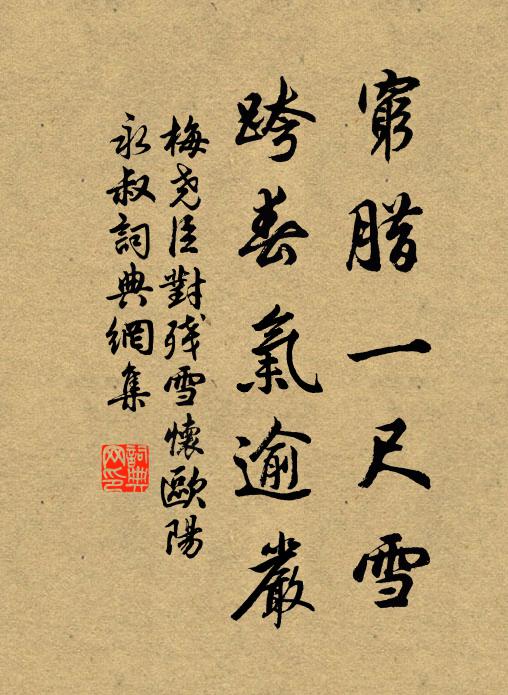 窮腊一尺雪
跨春氣逾嚴
梅尧臣對殘雪懷歐陽
永叔詞典網集
詞典
网印